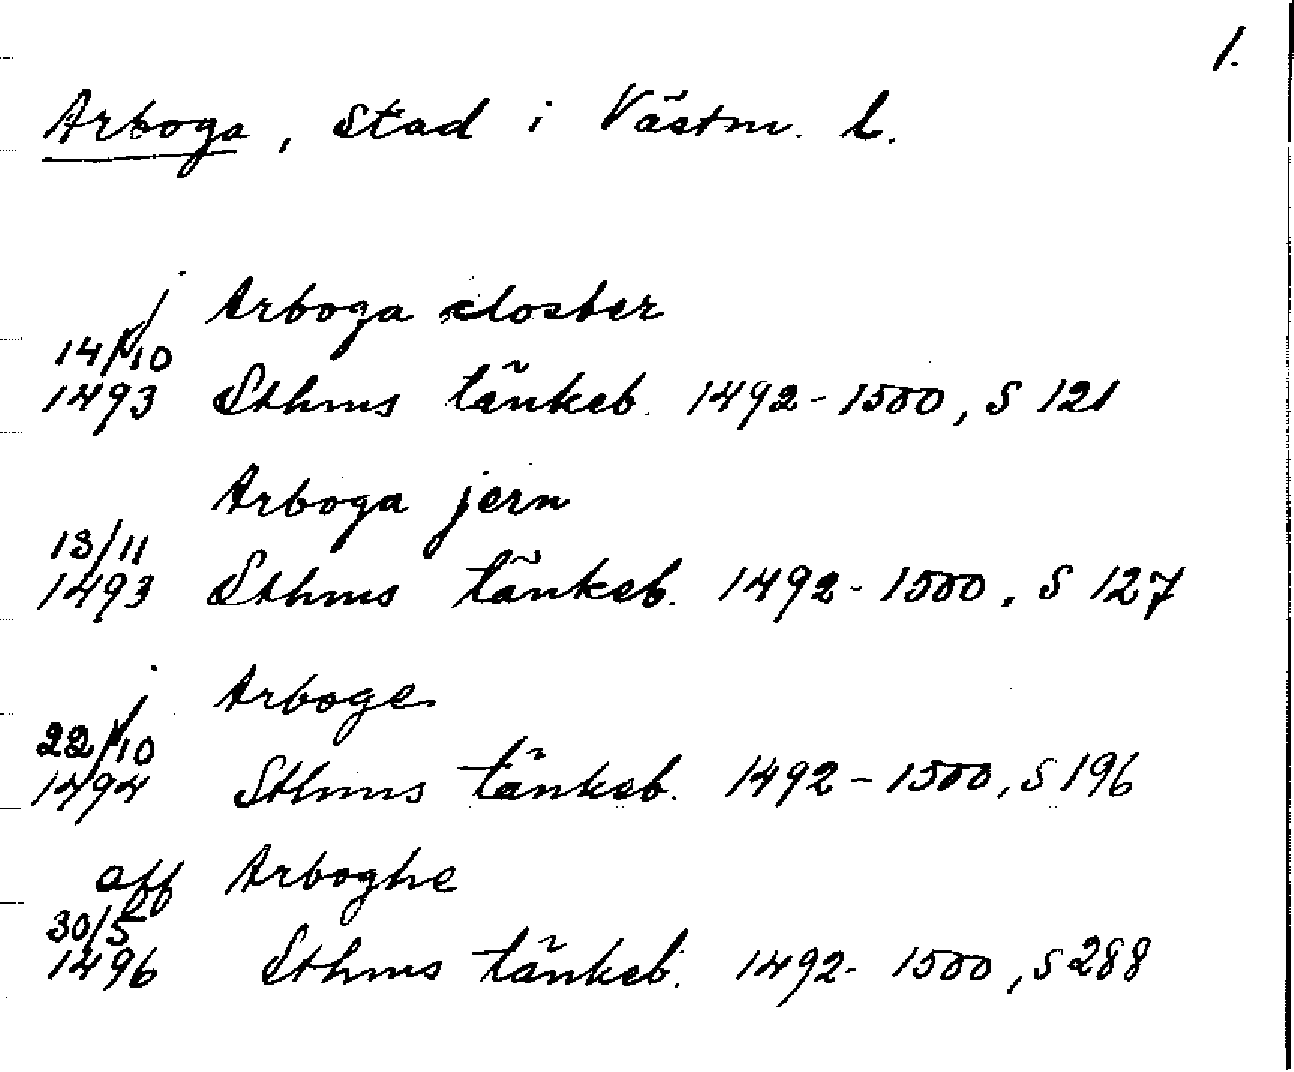 1.
Arboga, Stad i Västm. L.
j Arboga closter
14/10
1493 Sthms tänkeb. 1492-1500, S 121
Arboga jern
13/11
1493 Sthms tänkeb. 1492-1500, S 127
j Arboge
22/10
1494 Sthms tänkeb. 1492-1500, S 196
aff Arboghe
30/5
1496 Sthms tänkeb. 1492-1500, S 288